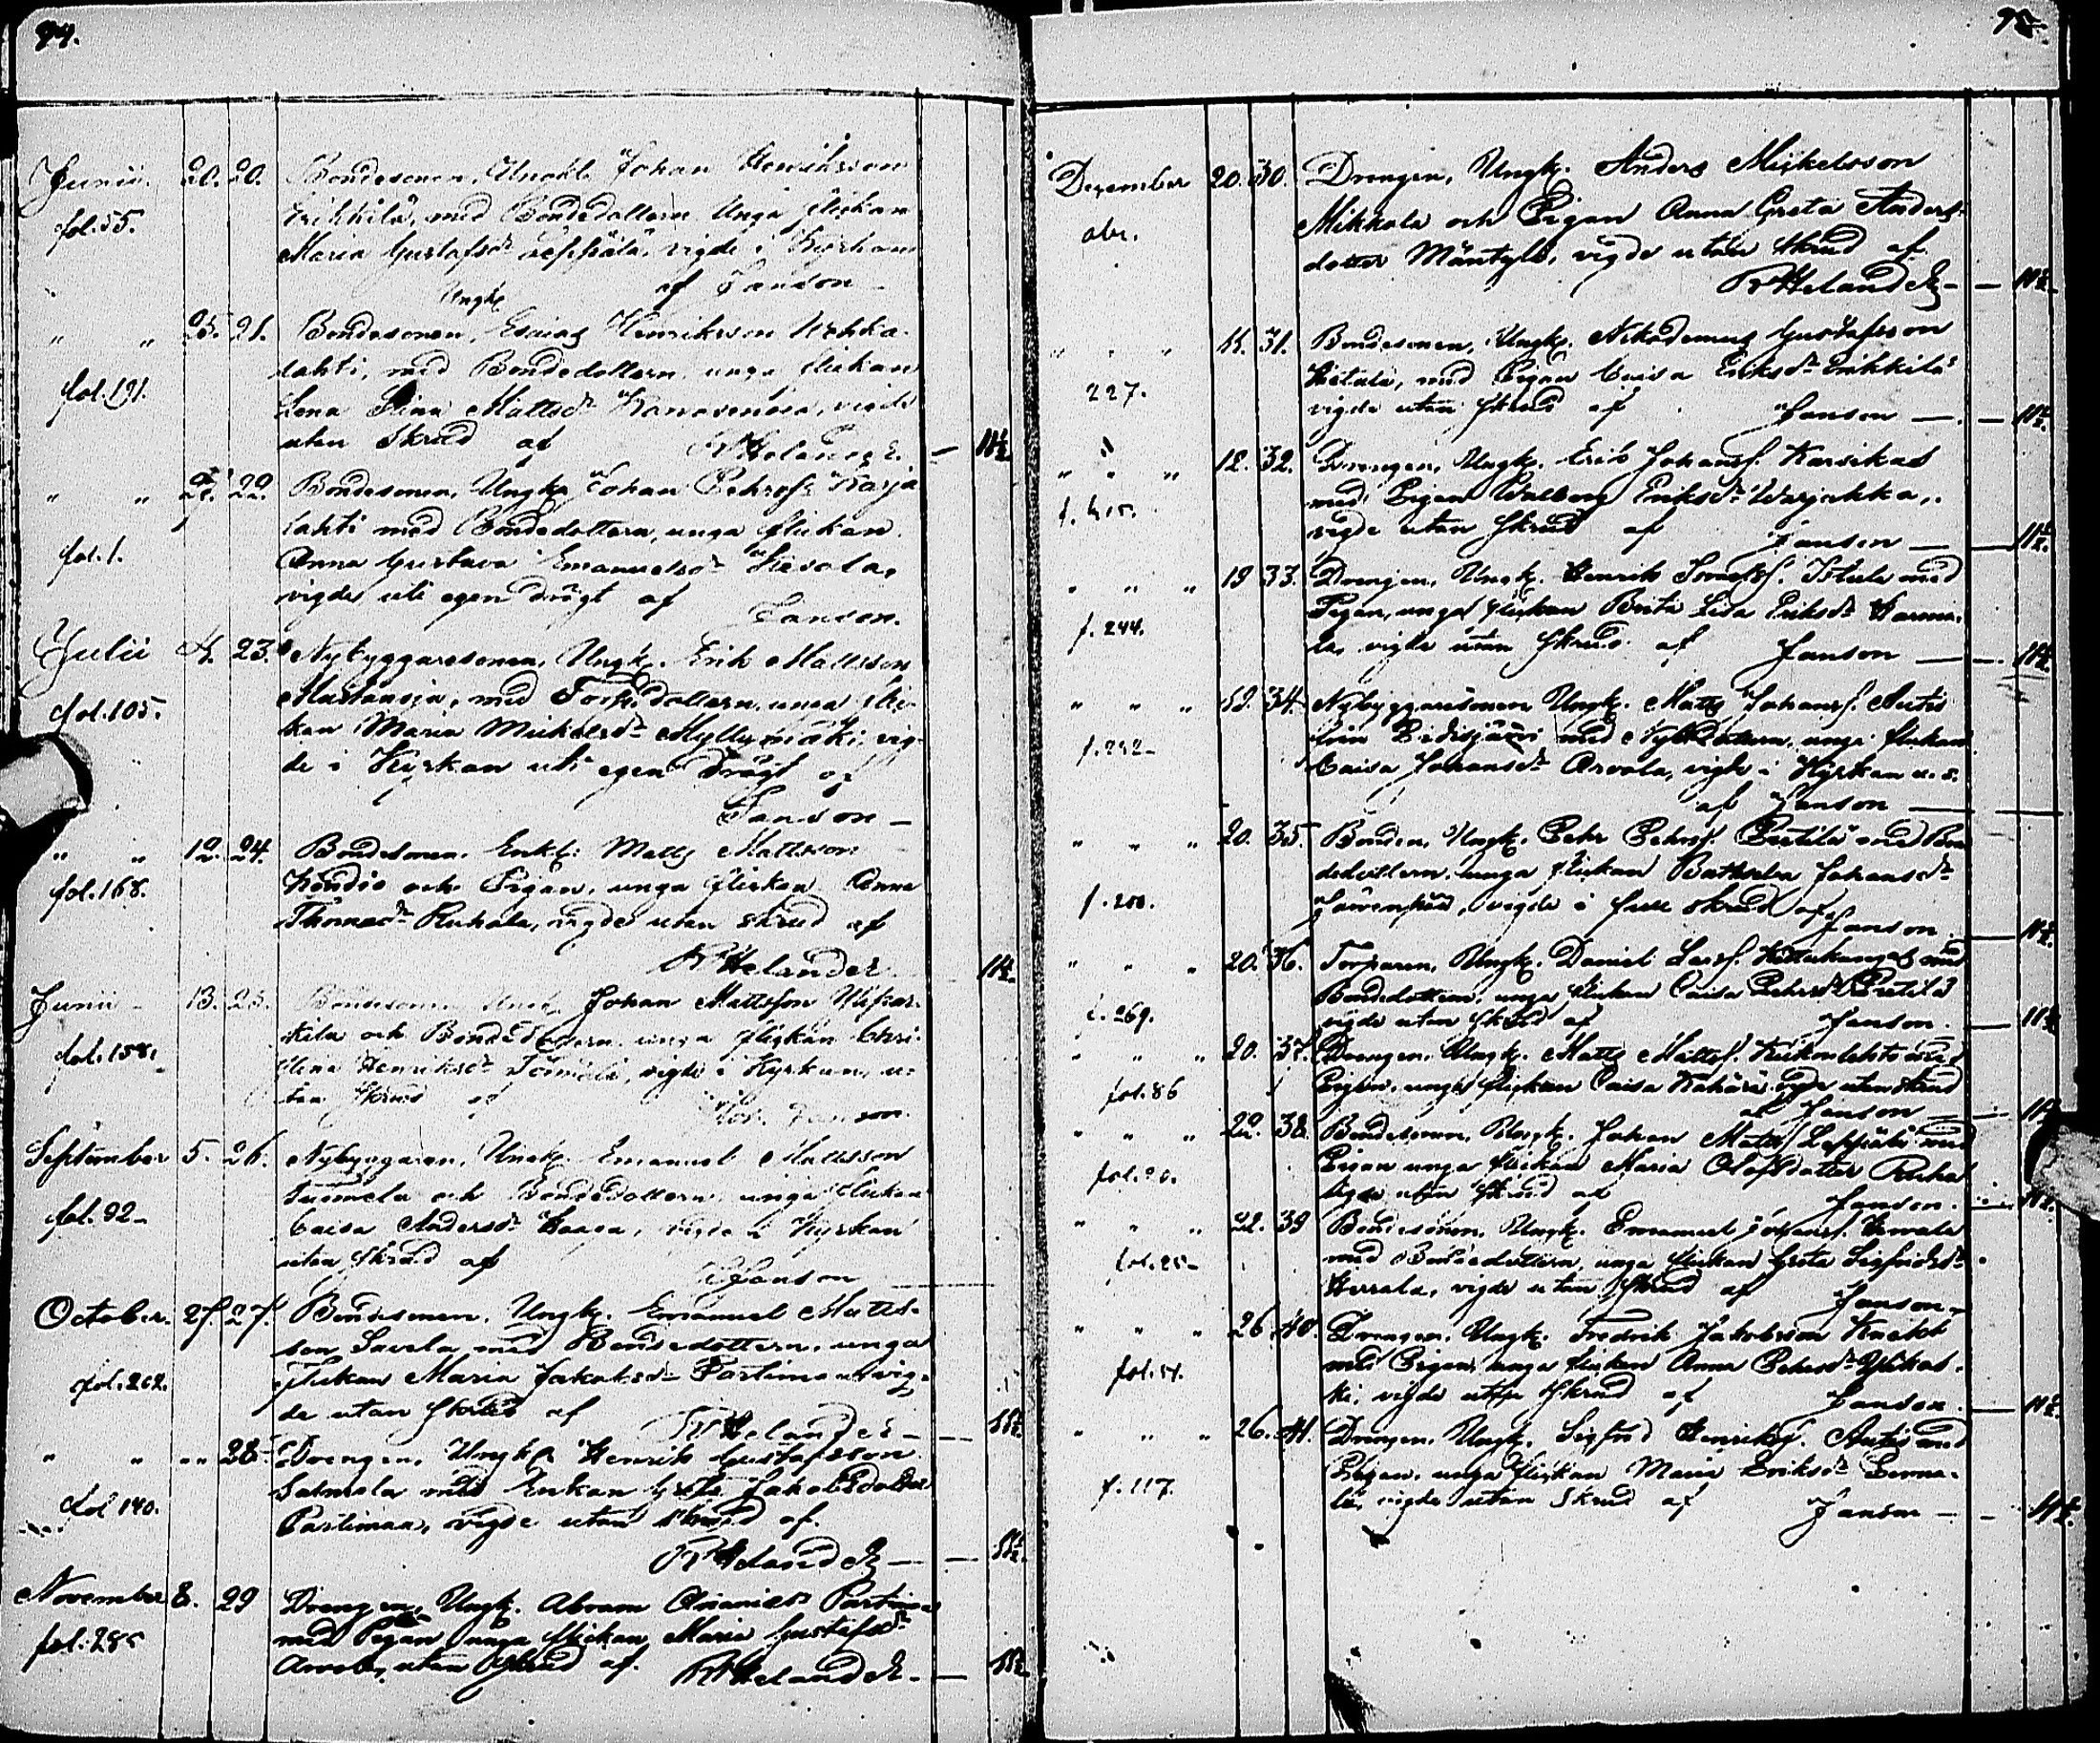 94.
Junii. 20. 20. Bondesonen, Ungk. Johan Henriksson
fol. 55. Erikkilä, med Bondedottern Unga flickan
Maria Gustafsdr Leppälä, vigde i Kyrkan
af Janson
Ungk.
" " 25. 21. Bondesonen, Esaias Henriksson
lahti, med Bondedottern unga flickan
fol. 191. Lena Stina Mattsdr vigde
uten Skrud af RHelander. — 11½
" " 22. Bondesonen, Ungk. Johan Pehrss. Karja
lahti med Bondedottern, unga flickan
fol. 1. Anna Gustava Emanuelsdr
vigde uti egen drägt af
Janson.
Julii 4. 23. Nybyggaresonen, Ungk. Erik Mattsson
fol. 105. med Torp.dottern unga flic-
kan Maria Mickelsdr Myllymäki, vig-
de i Kyrkan uti egen Drägt af
Janson —
" " 12. 24. Bondesonen. Enkl. Matts Mattsson
fol. 168. Kondio och Pigan, unga flickan Anna
Thomasdr Ruhala, vigde uten skrud af
RHelander. 11½
Junii — 13. 25. Bondesonen Ungk. Johan Mattsson
kila och Bondedottern unga flickan Chri-
fol. 158. stina Henriksdr vigde i Kyrkan, u-
tan Skrud af Janson.
September 5. 26. Nybyggaren, Ungk. Emanuel Mattsson
Tuomela och Bondedottern unga flickan
fol. 92 — Caisa Andersdr Haaga, vigde i Kyrkan
utan skrud af
Janson
October. 27. 27. Bondesonen, Ungk. Emanuel Matts-
son Savela med Bondedottern, unga
fol. 202. Flickan Maria Jakobsdr Partimo vig-
de utan skrud af RHelander — 11½
" " " 28. Drengen, Ungk. Henrik Gustafsson
Salmela med Enkan Greta Jakobsdotter
fol 140. Partimaa, vigde utan skrud af
RHelander — 11½
November 8. 29 Drengen, Ungk. Abram Partimo
med Pigan unga flickan Maria Gustafsdr
fol. 285 Arvola, utan Skrud af. RHelander — 11½
95.
Dezember 20. 30. Drengen, Ungk. Anders Mickelsson
Mikkola och Pigan Anna Greta Anders-
abr. dotter Mäntylä, vigde utan skrud af
RHelander — 11½
" " " 11. 31. Bondesonen, Ungk. Nikodemus Gustafsson
227. Hietala, med Pigan Caisa Eriksdr Erikkilä
vigde utan skrud af Janson — 11½
" " " 12. 32. Drengen, Ungk. Erik Johanss. Karsikas
med Pigan Walborg Eriksdr
f. 415. vigde utan skrud af Janson — 11½
" " " 19 33. Drengen, Ungk. Henrik med
Pigan, unga flickan Brita Lisa Eriksdr Harma-
f. 244. la, vigde utan skrud af Janson — 11½
" " " 34. Nybyggaresonen Ungk. Matts Johanss. Autio
med Nyb.dottern, unga flickan
f. 292 — Caisa Johansdr Arvola, vigde i Kyrkan u. s.
af Janson —
" " " 20. 35. Bonden, Ungk. Pehr Pehrss. Perttilä med Bon
dedottern unga flickan Bathseba Johansdr
f. 200. vigde i full skrud af Janson. — 11½
" " " 20. 36. Torparen, Ungk. Daniel Larss. med
Bondedottern, unga flickan Caisa Pehrsdr Perttilä
f. 269. vigde utan skrud af Janson. — 11½
" " " 20. 37. Drengen, Ungk. Matts Mattss. Kuikonlahti med
Pigan, unga flickan Caisa Kähärä vigde utan skrud
fol. 86 af Janson — 11½
" " " 22. 38. Bondesonen, Ungk. Johan Matss. Leppälä med
Pigan unga flickan Maria Olofsdotter Ruha
fol. 20. vigde utan skrud af Janson. — 11½
" " " 22. 39 Bondesonen, Ungk. Emanuel Johanss.
med Bondedottern, unga flickan Greta Sigfridsdr
fol. 25 — Herrala, vigde utan skrud af Janson —
" " " 26 40. Drengen, Ungk. Fredrik Jakobsson
med Pigan unga flickan Anna Pehrsdr
fol. 51. vigde utan skrud af Janson. — 11½
" " " 26. 41. Drengen, Ungk. Sigfrid Henrikss. Autio med
Pigan, unga flickan Maria Eriksdr
f. 117. vigde utan Skrud af Janson — 11½